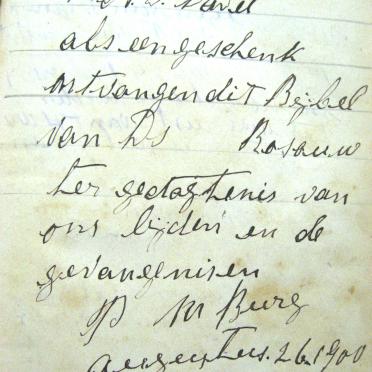 als een geschenk
ontvangen dit Bijbel
van Ds Rosauw
ter gedagtenis van
ons lijden en de
gevangenisen
P M Burg
Augustus. 26. 1900